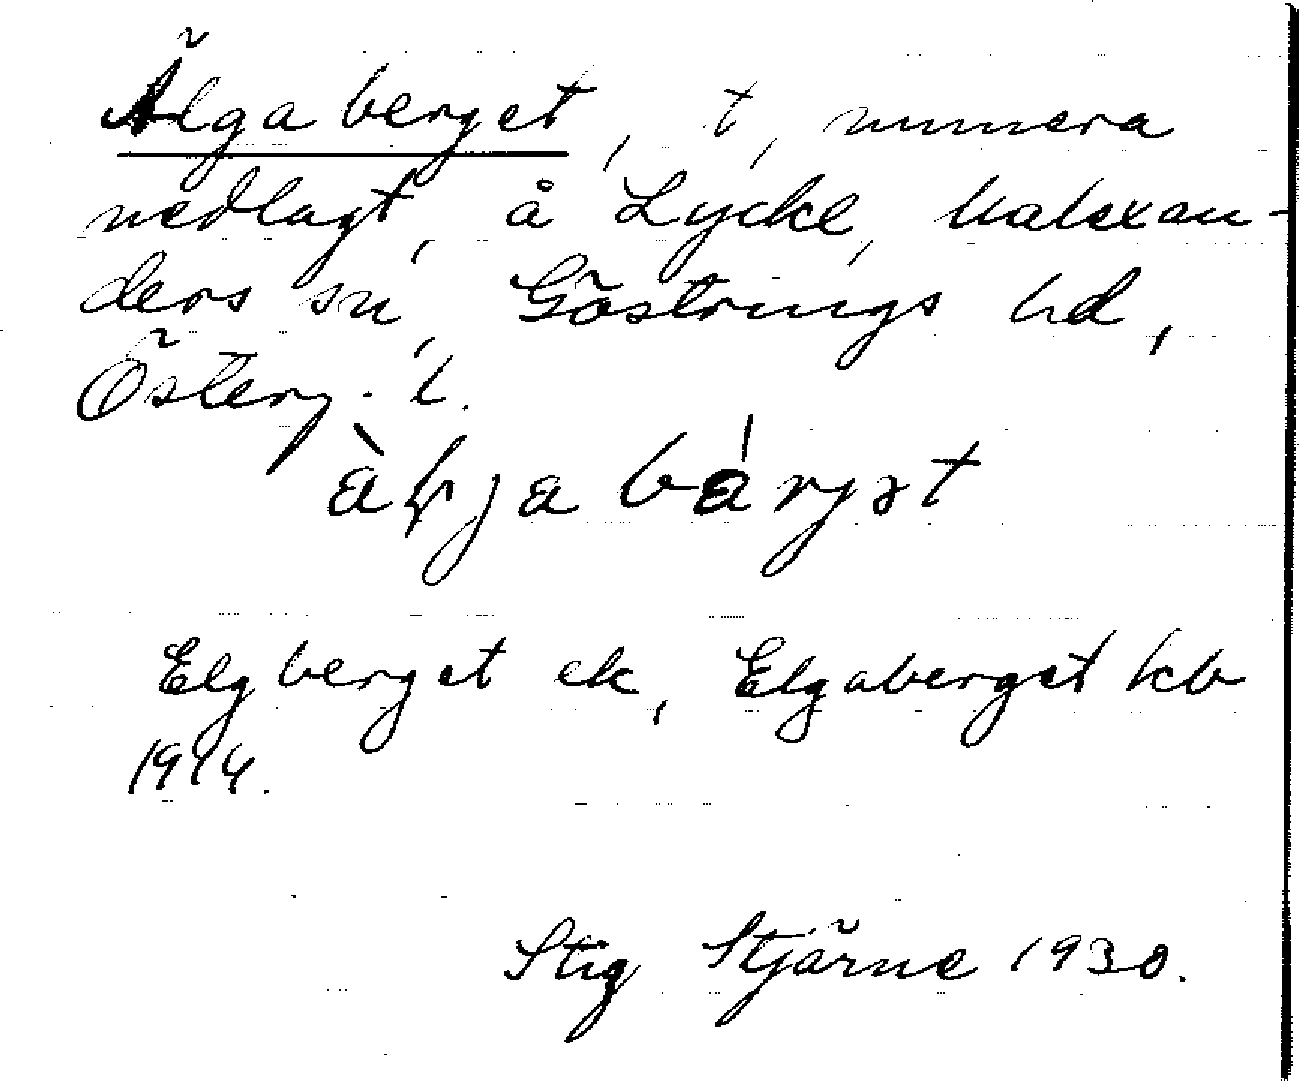 Älgaberget, t, numera
nedlagt, å Lycke, Malexan-
ders sn, Göstrings hd,
Österg. l.
Elgberget ek, Elgaberget kb
1914.
Stig Stjärne 1930.